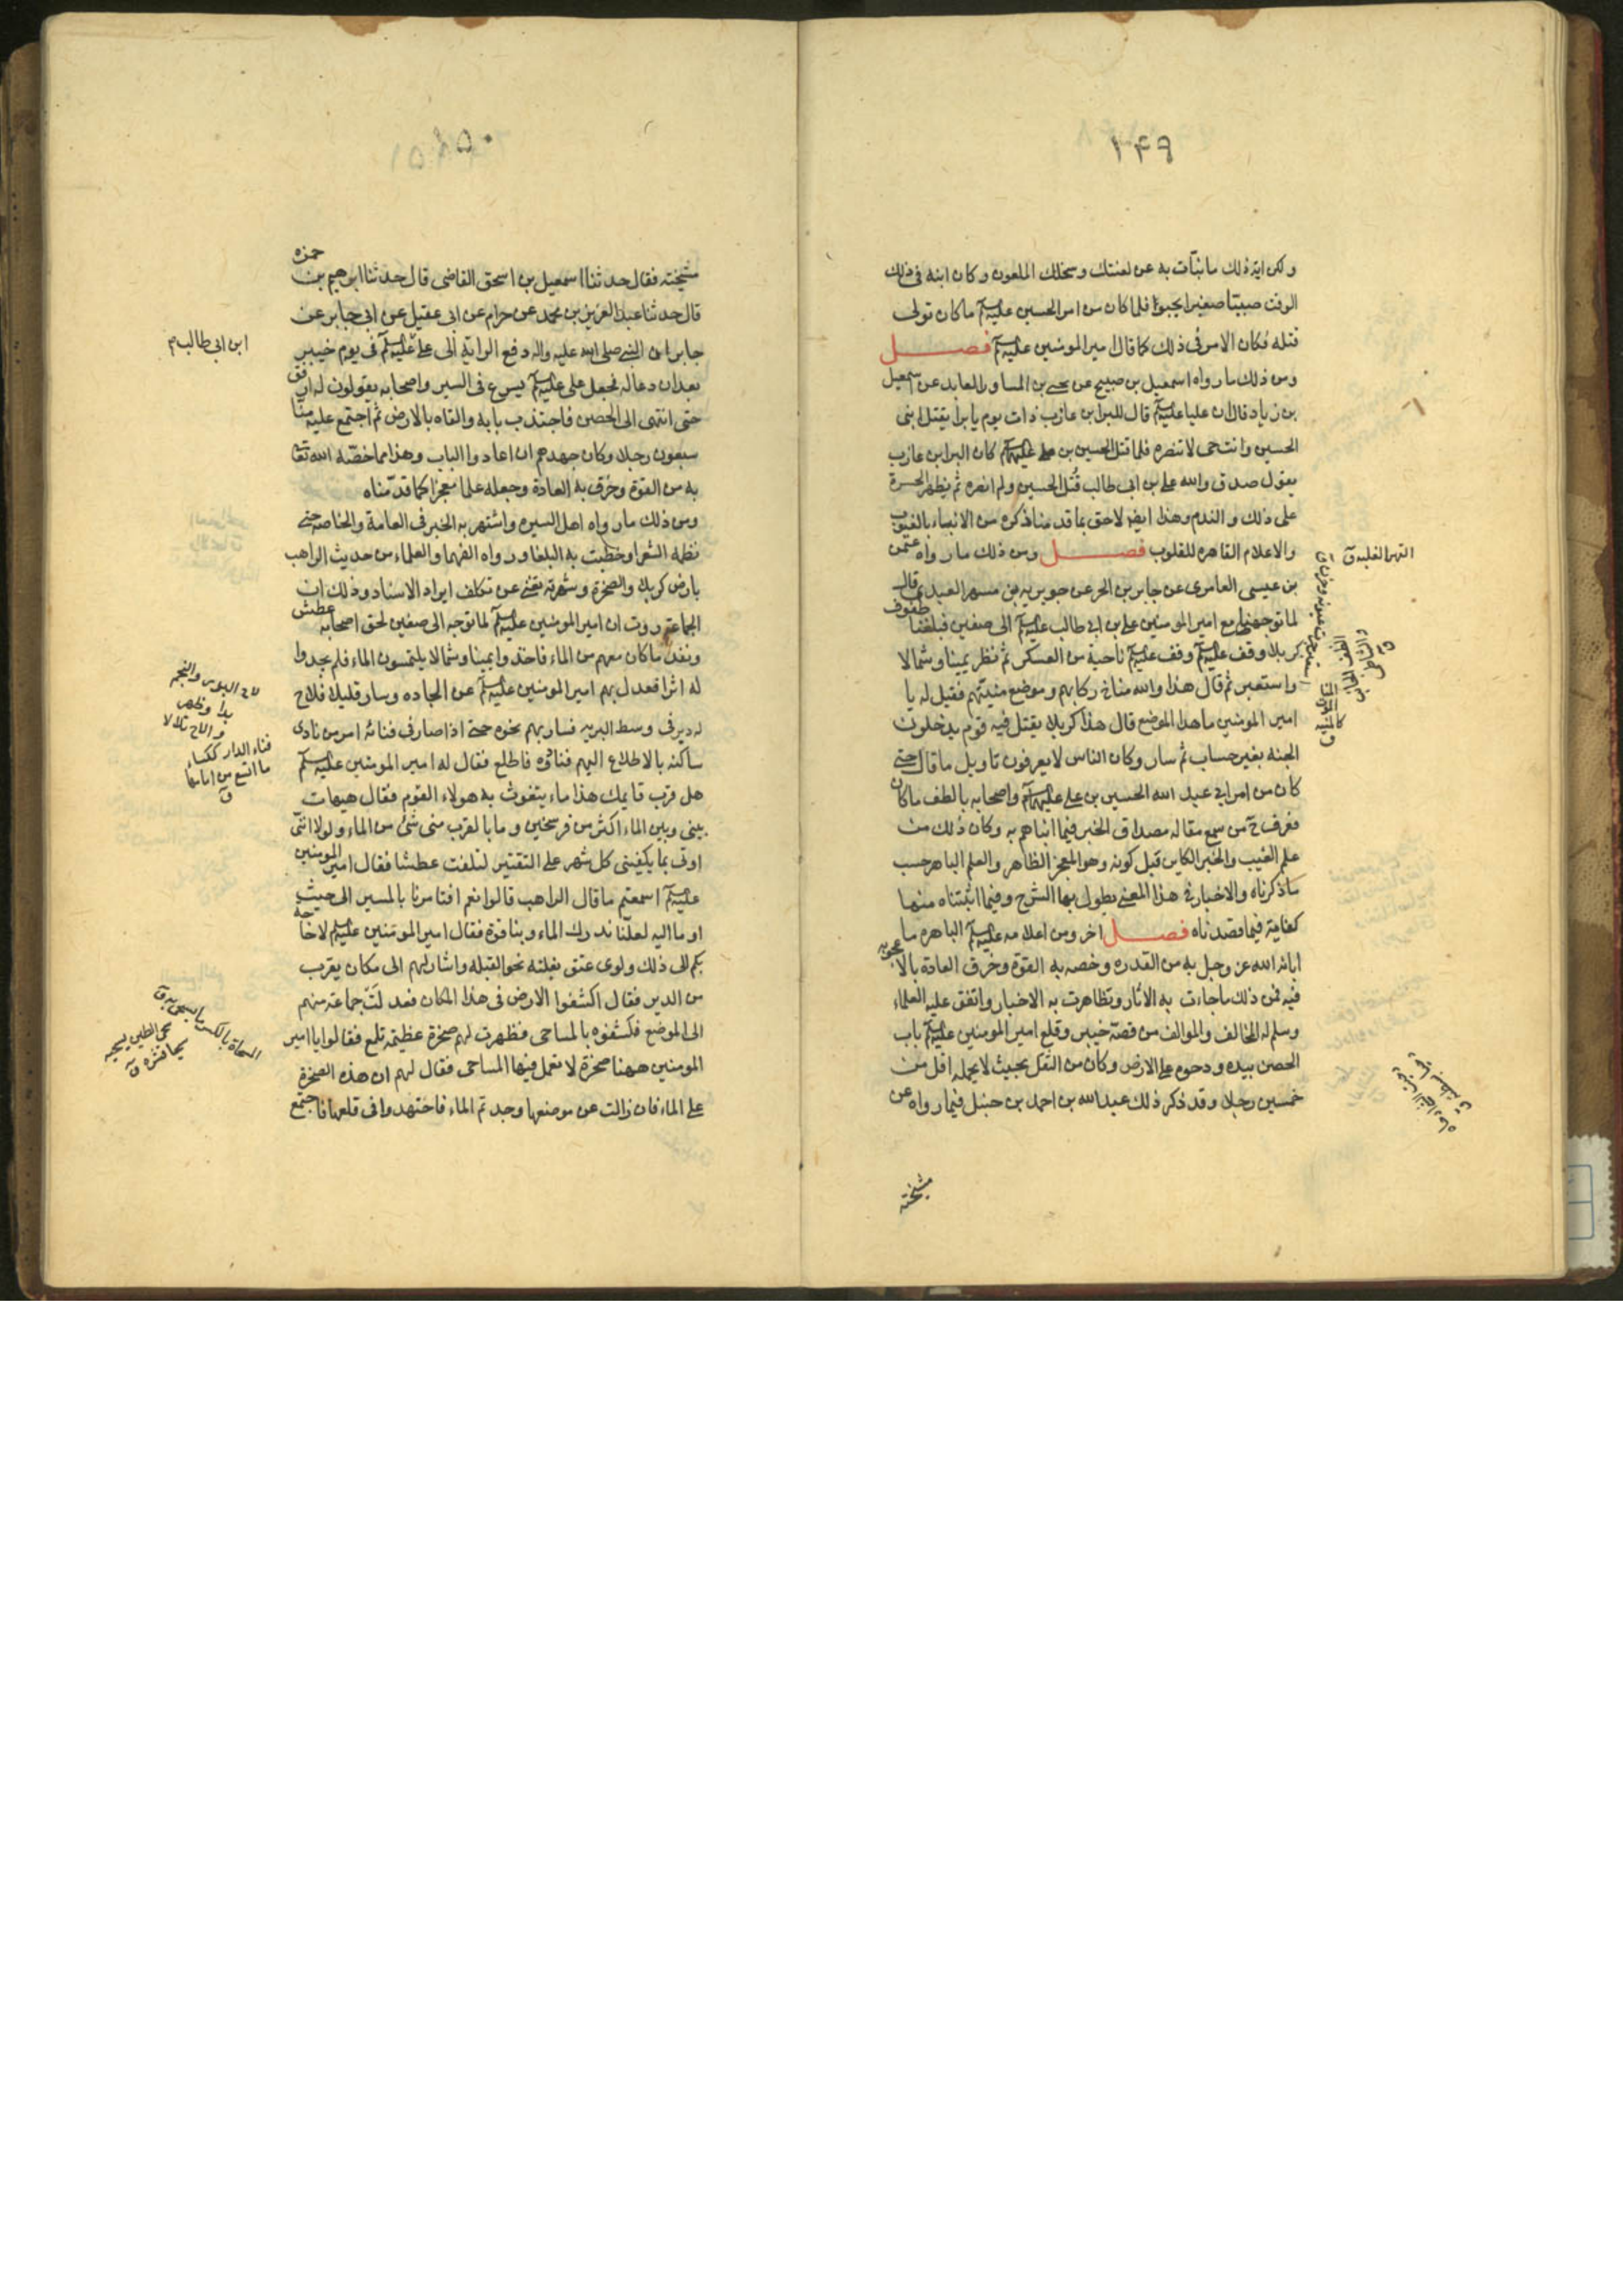 ١٤٩
ولكن اية ذلك ما نبات به عن لعنتك وسخلك الملعون وكان ابنه فى ذلك
الوقت صبيتا صغيرا يحبوا فلما كان من امر الحسين عليه السلم ما كان تولى
قتله فكان الامر فى ذلك كما قال امير المومنين عليه السلم فصل
ومن ذلك ما رواه اسمعيل بن صبيح عن يحيى بن المساور العابد عن اسمعيل
بن زياد قال ان عليا عليه السلم قال للبرا بن عازب ذات يوم يا برا يقتل ابنى
الحسين وانت حى لا تنصره فلما قتل الحسين بن على عليهما السلم كان البرا بن عازب
يقول صدق والله على بن ابى طالب قُتل الحسين ولم انصره ثم يظهر الحسرة
على ذلك والندم وهذا ايضا لاحق بما قد منا ذكره من الانبياء بالغيوب
والاعلام القاهره للقلوب فصل ومن ذلك ما رواه عثمن
بن عيسى العامرى عن جابر بن الحر عن جويريه بن مسهر العبدى قال
لما توجهنا مع امير المومنين على بن ابى طالب عليه السلم الى صفين فبلغنا طفوف
كربلا وقف عليه السلم وقف عليه السلم ناحية من العسكر ثم نظر يمينا وشمالا
واستعبر ثم قال هذا والله مناخ ركابهم وموضع منيتهم فقيل له يا
امير المومنين ما هذا الموضع قال هذا كربلا يقتل فيه قوم يدخلون
الجنه بغير حساب ثم سار وكان الناس لا يعرفون تاويل ما قال حتى
كان من امر ابى عبد الله الحسين بن على عليهما السلم واصحابه بالطف ما كان
فعرف ح من سمع مقاله مصداق الخبر فيما انباهم به وكان ذلك من
علم الغيب والخبر الكاين قبل كونه وهو المعجز الظاهر والعلم الباهر حسب
ما ذكرناه والاخبار فى هذا المعنى يطول بها الشرح وفيما اثبتناه منها
كفاية فيما قصدناه فصل اخر ومن اعلامه عليه السلم الباهره ما
ابانه الله عز وجل به من القدره وخصه به القوة وخرق العادة بالاعجوبه
فيه فمن ذلك ما جاءت به الاثار وتظاهرت به الاخبار واتفق عليه العلماء
وسلم له المخالف والموالف من قصة خيبر وقلع امير المومنين عليه السلم باب
الحصن بيده ودحوه على الارض وكان من الثقل بحيث لا يحمله اقل من
خمسين رجلا وقد ذكر ذلك عبد الله بن احمد بن حنبل فيما رواه عن
مشيخته
القهر الغلبه ق
١٥٠
مشيخته فقال حدثنا اسمعيل بن اسحق القاضى قال حدثنا ابرهيم بن حمزه
قال حدثنا عبد العزيز بن محمد عن حرام عن ابى عقيل عن ابى جابر عن
جابر ان النبى صلى الله عليه واله دفع الراية الى على عليه السلم فى يوم خيبر
بعد ان دعا له فجعل على عليه السلم يسرع فى السير واصحابه يقولون له ارفق
حتى انتهى الى الحصن فاجتذب بابه والقاه بالارض ثم اجتمع عليه منا
سبعون رجلا وكان جهدهم ان اعادوا الباب وهذا مما خصّه الله تعا
به من القوة وخرق به العادة وجعله علما معجزا كما قدّمناه
ومن ذلك ما رواه اهل السيره واشتهر به الخبر فى العامة والخاصه حتى
نظمه الشعرا وخطبت به البلغا ورواه الفهما والعلماء من حديث الراهب
بارض كربلا والصخرة وشهرته يغنى عن تكلف ايراد الاسناد وذلك ان
الجماعة روت ان امير المومنين عليه السلم لما توجه الى صفين لحق اصحابه عطش
ونفد ما كان معهم من الماء فاخذوا يمينا وشمالا يلتمسون الماء فلم يجدوا
له اثرا فعدل بهم امير المومنين عليه السلم عن الجاده وسار قليلا فلاح
له دير فى وسط البريه فسار بهم نحوه حتى اذا صار فى فنائه امر من نادى
ساكنه بالاطلاع اليهم فنادوه فاطلع فقال له امير المومنين عليه السلم
هل قرب قايمك هذا ماء يتغوث به هولاء القوم فقال هيهات
بينى وبين الماء اكثر من فرسخين وما بالقرب منى شئ من الماء ولولا انّنى
اوتى بما يكفينى كل شهر على التقتير لتلفت عطشا فقال امير المومنين
عليه السلم اسمعتم ما قال الراهب قالوا نعم افتامرنا بالمسير الى حيث
اوما اليه لعلّنا ندرك الماء وبنا قوة فقال امير المومنين عليه السلم لا حاجه
بكم الى ذلك ولوى عنق بغلته نحو القبله واشار لهم الى مكان يقرب
من الدير فقال اكشفوا الارض فى هذا المكان فعدلت جماعة منهم
الى الموضع فكشفوه بالمساحى فظهرت لهم صخرة عظيمة تلمع فقالوا يا امير
المومنين ههنا صخرة لا تعمل فيها المساحى فقال لهم ان هذه الصخرة
على الماء فان زالت عن موضعها وجدتم الماء فاجتهدوا فى قلعها فاجتمع
ابن ابى طالب م
لاح البرق والنجم
بدا وظهر
والاح تلالا
فناء الدار ككساء
ما اتسع من امامها
ق
المسحاة بالكسر ما يسحى به ق
سحى الطين يسحيه
قشره ق